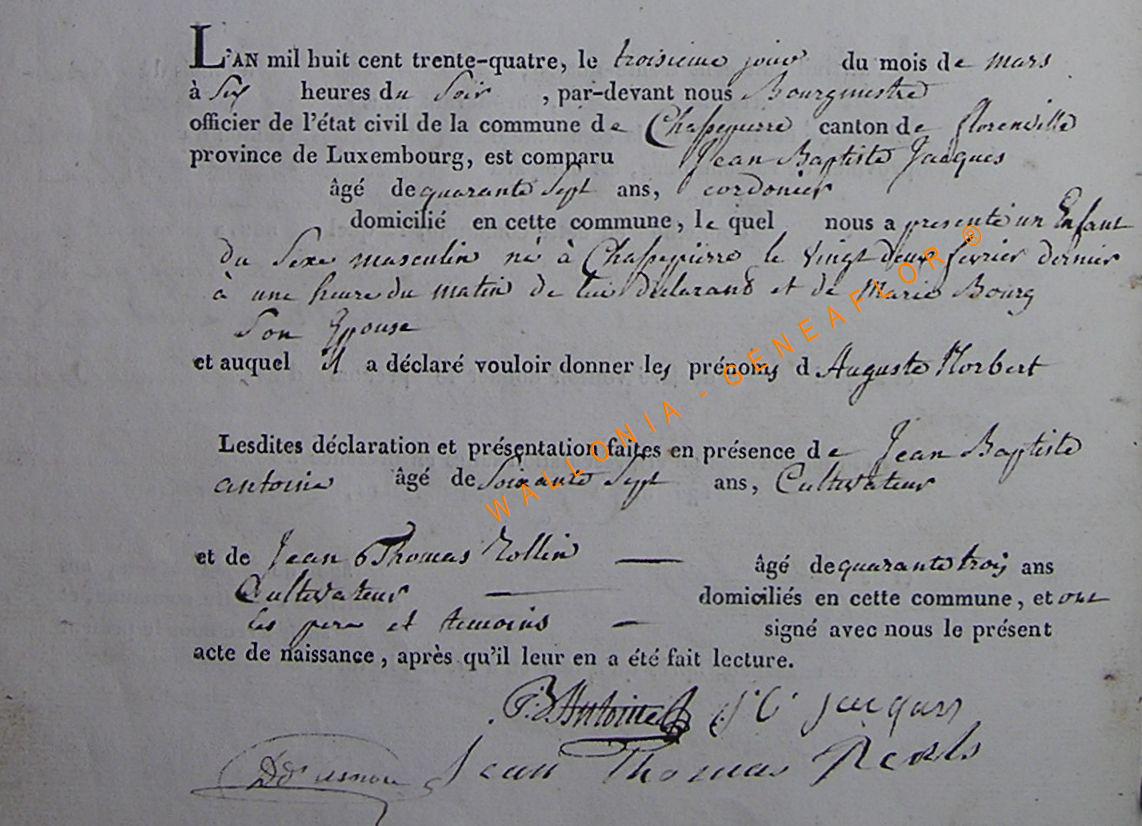 L'AN mil huit cent trente-quatre, le troisieme jour du mois de mars
à Six heures du Soir, par-devant nous Bourgmestre
officier de l'état civil de la commune de Chassepierre canton de florenville
province de Luxembourg, est comparu Jean Baptiste Jacques
âgé de quarante Sept ans, cordonier
domicilié en cette commune, le quel nous a presenté un Enfant
du Sexe masculin né à Chassepierre le vingt deux fevrier dernier
à une heure du matin de lui déclarant et de Marie Bourg
Son Epouse
et auquel il a déclaré vouloir donner les prénoms d Auguste Norbert
Lesdites déclaration et présentation faites en présence de Jean Baptiste
antoine âgé de Soixante Sept ans, Cultivateur
et de Jean Thomas âgé de quarante trois ans
Cultivateur domiciliés en cette commune, et ont
les pere et temoins signé avec nous le présent
acte de naissance, après qu'il leur en a été fait lecture.
Antoine Jacques
Jean Thomas
WALLONIA - GENEAFLOR ®